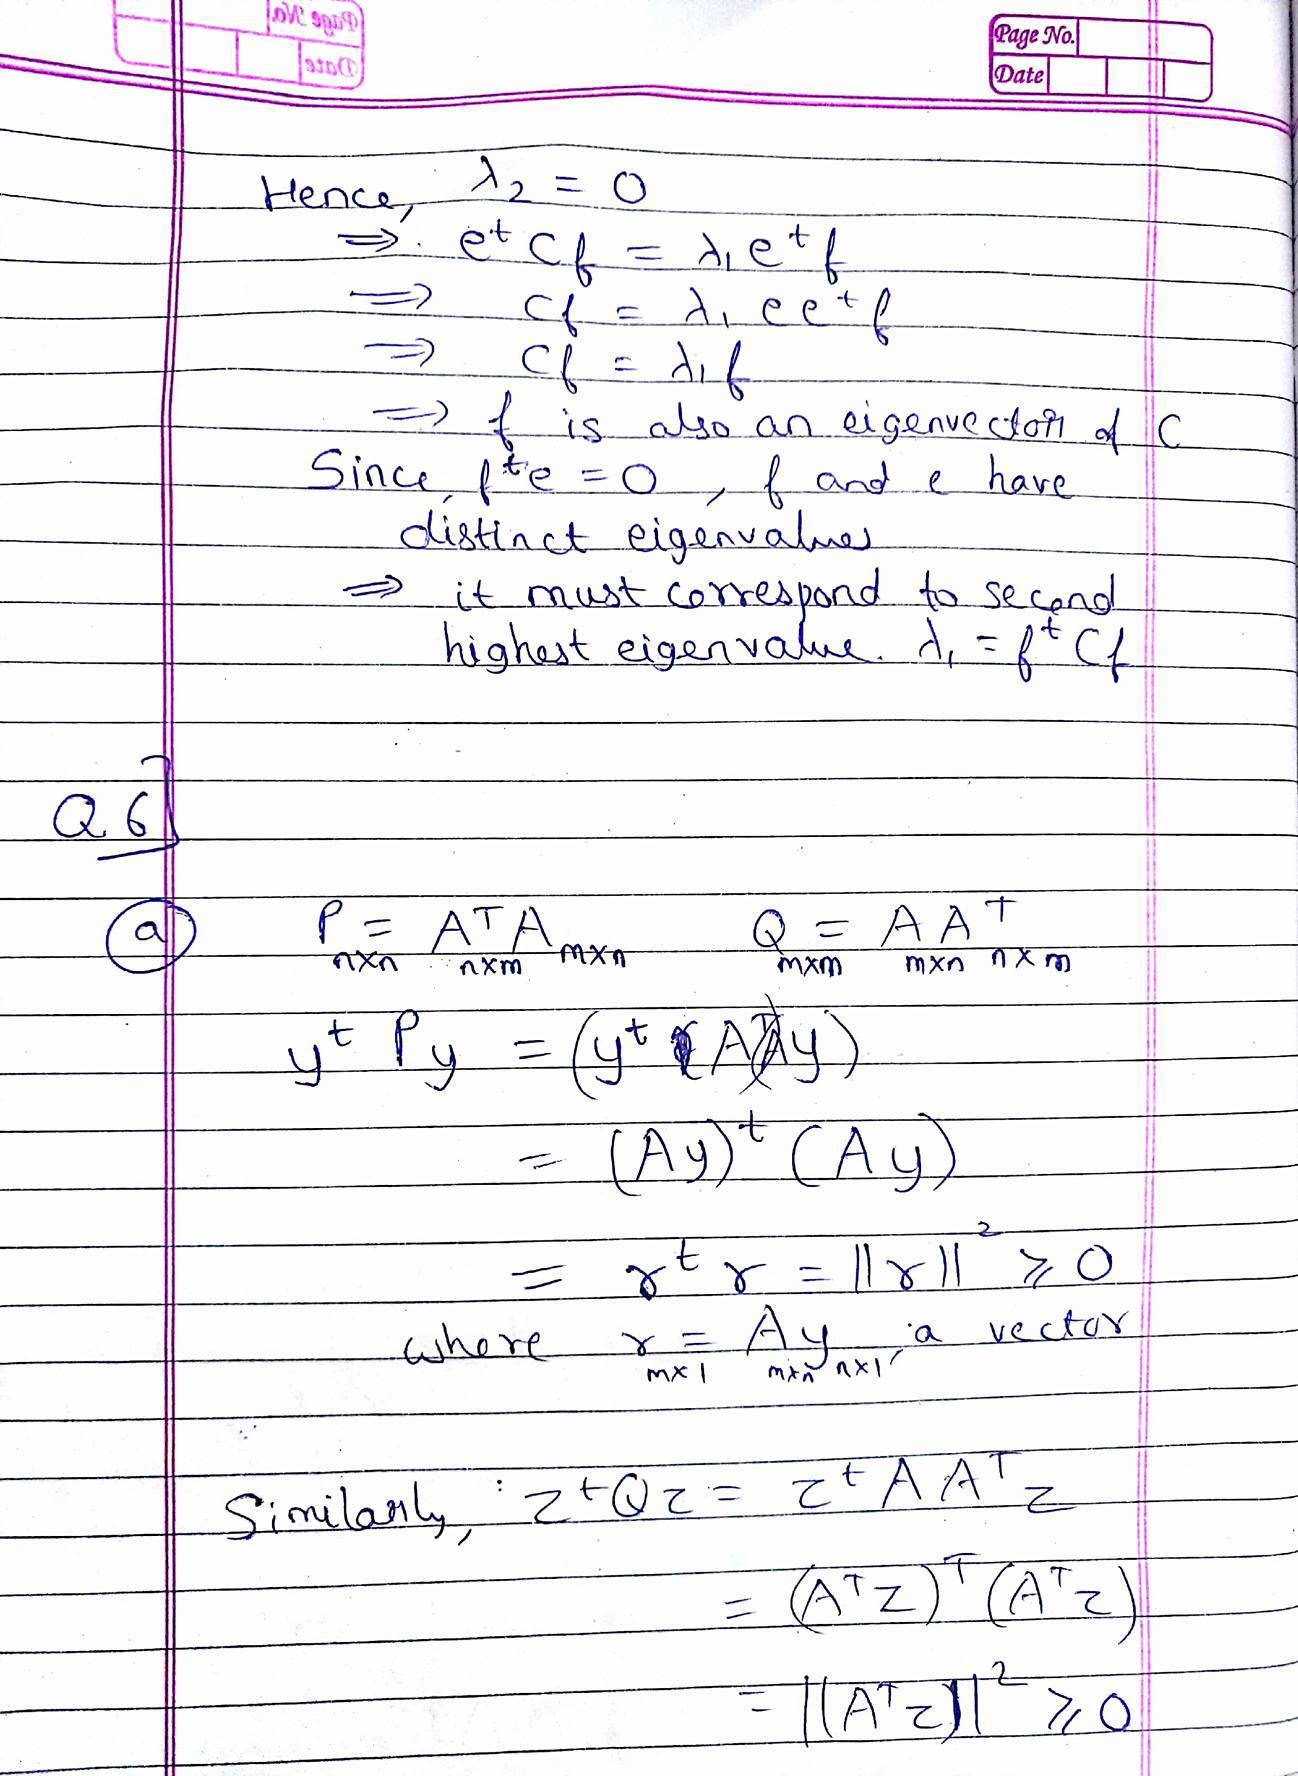 Page No.
Date
Page No.
Date
Hence, λ₂ = 0
⇒ eᵗ C f = λ₁ eᵗ f
⇒ Cf = λ₁ e eᵗ f
⇒ Cf = λ₁ f
⇒ f is also an eigenvector of C
Since, fᵗe = 0, f and e have
distinct eigenvalues
⇒ it must correspond to second
highest eigenvalue. λ₁ = fᵗ Cf
Q 6]
(a) P = AᵀA Q = A Aᵀ
n×n n×m m×n m×m m×n n×m
yᵗ P y = (yᵗ (AᵀAy)
= (Ay)ᵗ (Ay)
= rᵗ r = ||r||² ⩾ 0
where r = Ay, a vector
m×1 m×n n×1
Similarly, zᵗQz = zᵗ A Aᵀ z
= (Aᵀz)ᵀ (Aᵀz)
= ||(Aᵀz)||² ⩾ 0